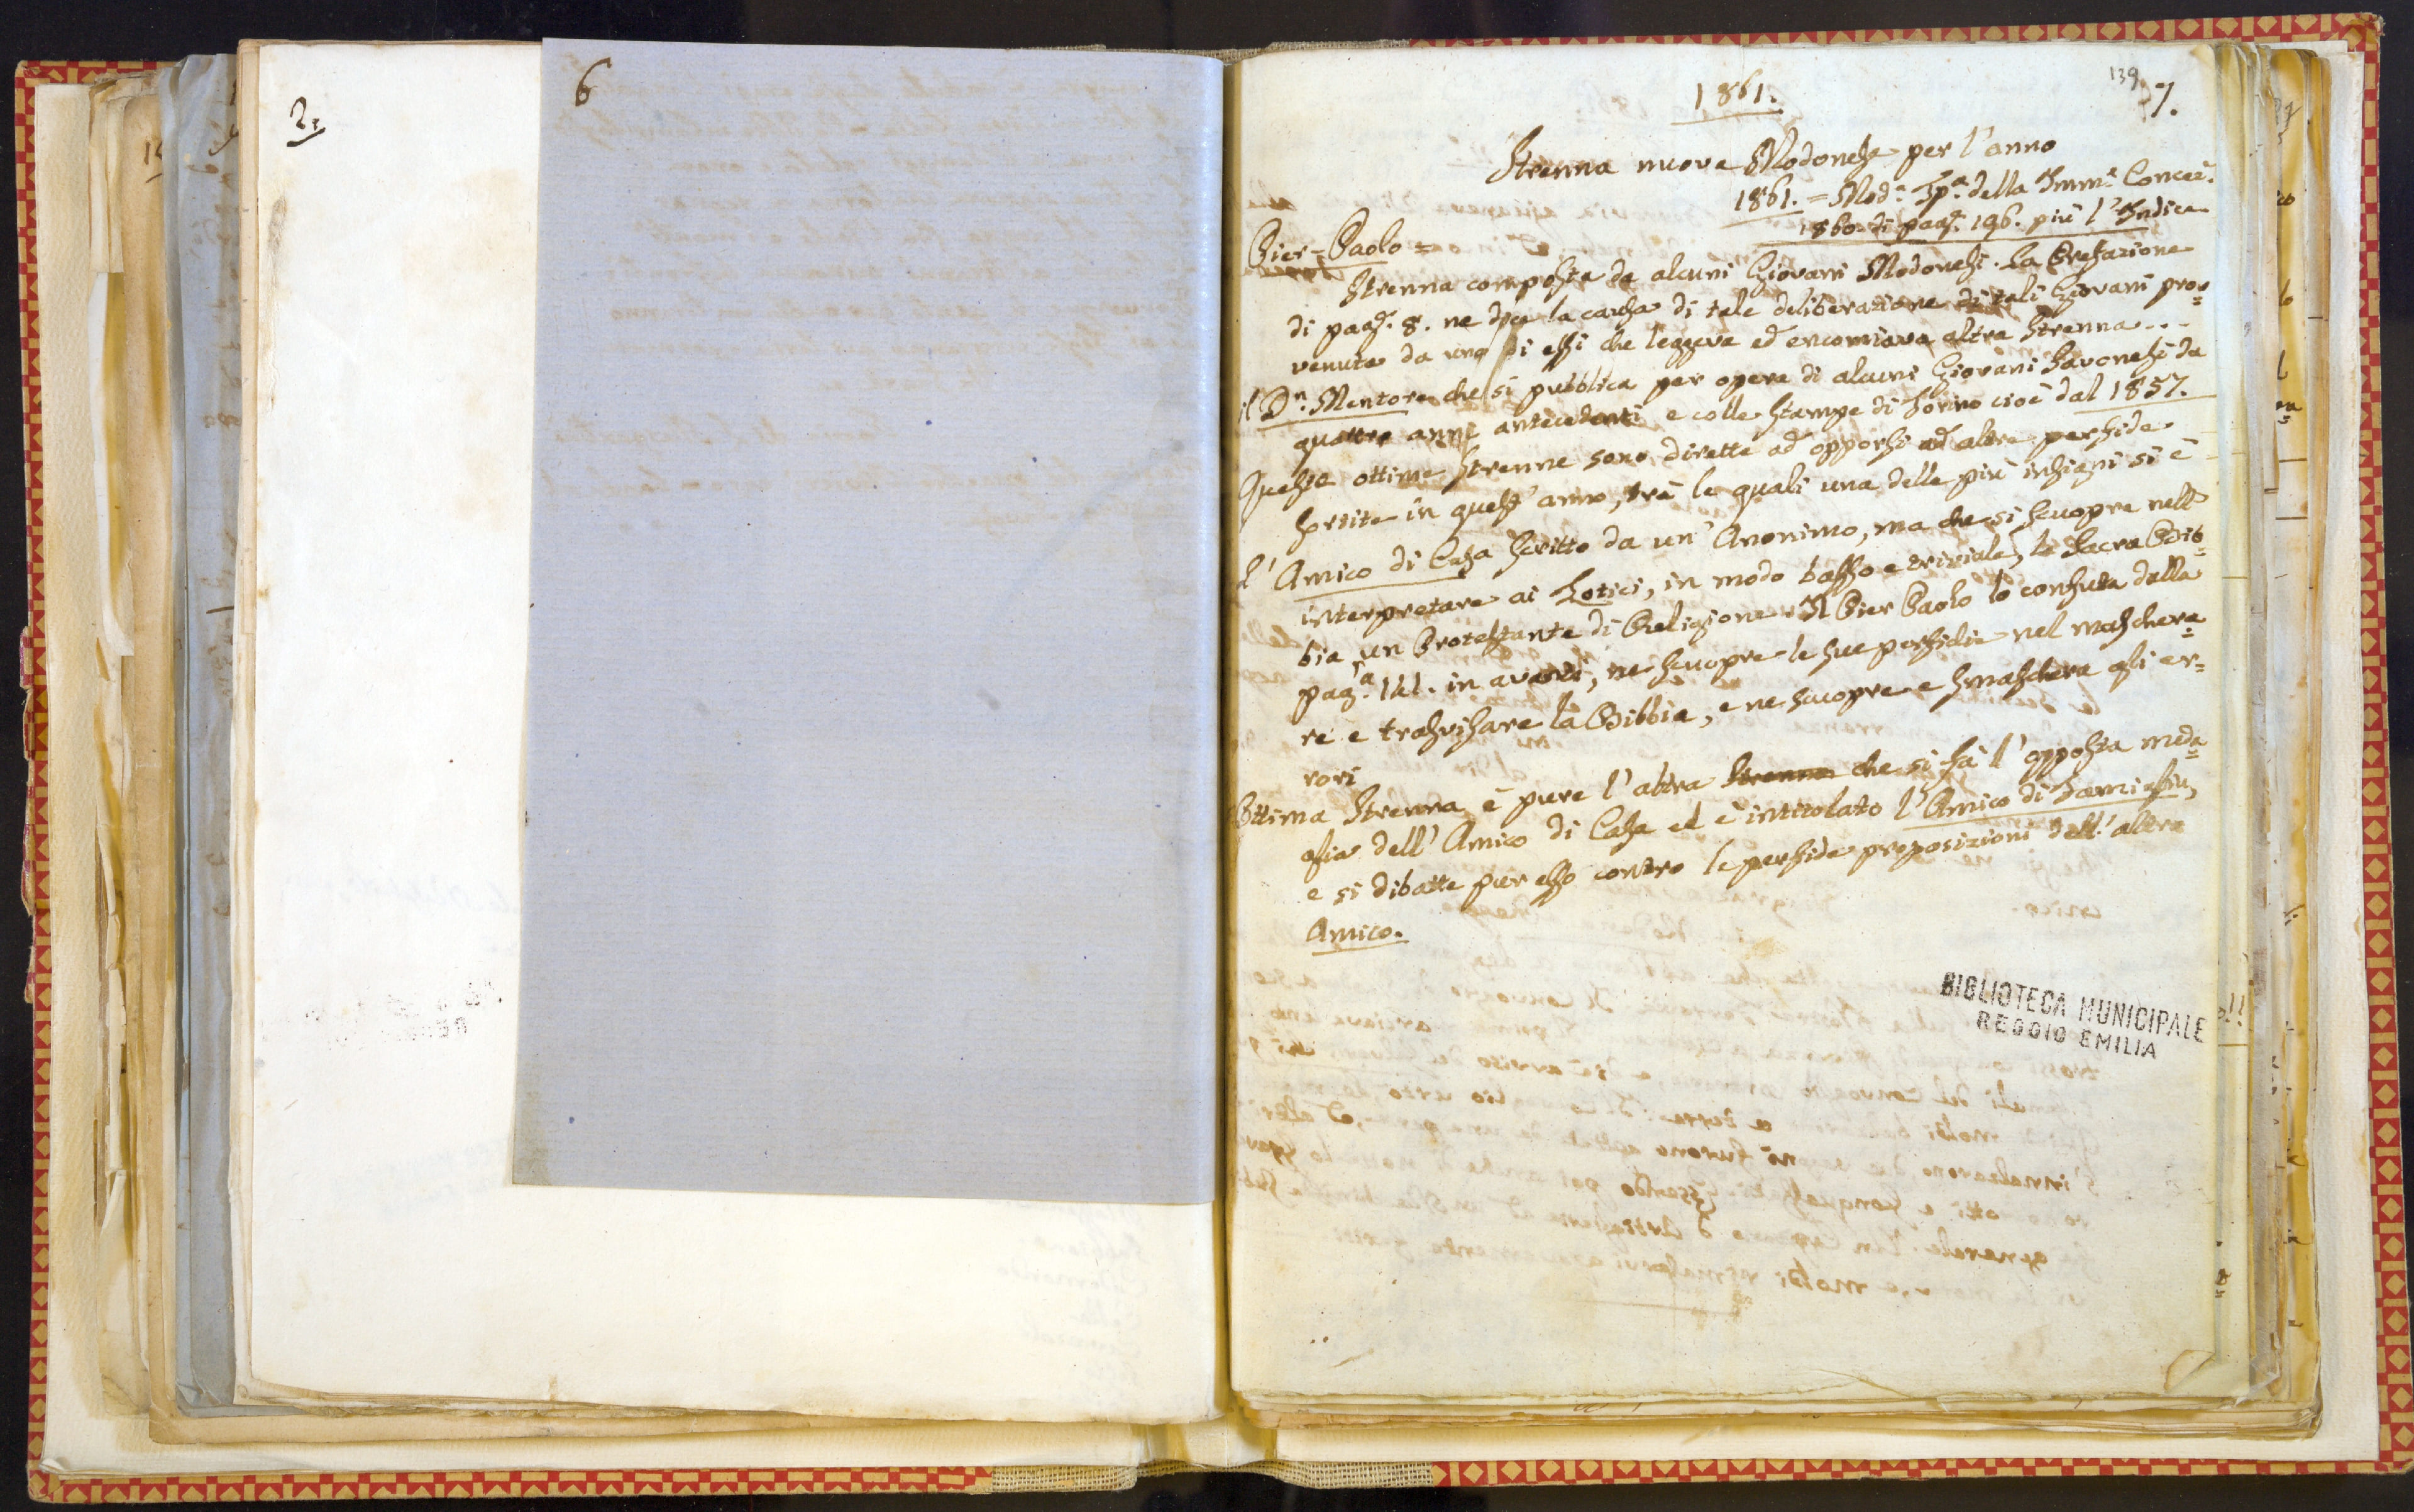 2.
6
139
7.
1861.
Strenna nuova Modonese per l'anno
1861. = Mod.a Tp.a della Imm.a Concez.
1860. di pag. 196. più l'Indice
Pier-Paolo =
Strenna composta da alcuni Giovani Modonesi. La Prefazione
di pag. 8. ne dice la causa di tale deliberazione di tali Giovani pro=
venute da uno di essi che leggeva ed encomiava altra Strenna...
il D.n Mentore che si pubblica per opera di alcuni Giovani Savonesi da
quattro anni antecedenti e colle stampe di Torino cioè dal 1857.
Queste ottime Strenne sono dirette ad opporsi ad altre perfide
sortite in quest'anno, trà le quali una delle più insigni si è
l'Amico di Casa scritto da un'Anonimo, ma che si scuopre nell
interpretare ai Zotici, in modo basso e triviale, la Sacra Bib=
bia, un Protestante di Religione. Il Pier Paolo lo confuta dalla
pag.a 141. in avanti, ne scuopre le sue perfidie nel maschera=
re e trasvisare la Bibbia, e ne scuopre e smaschera gli er=
rori
Ottima Strenna è pure l'altra Strenna che si fà l'opposta meda=
glia dell'Amico di Casa ed è intitolato l'Amico di Famiglia,
e si dibatte pur esso contro le perfide proposizioni dell'altro
Amico.
BIBLIOTECA MUNICIPALE
REGGIO EMILIA